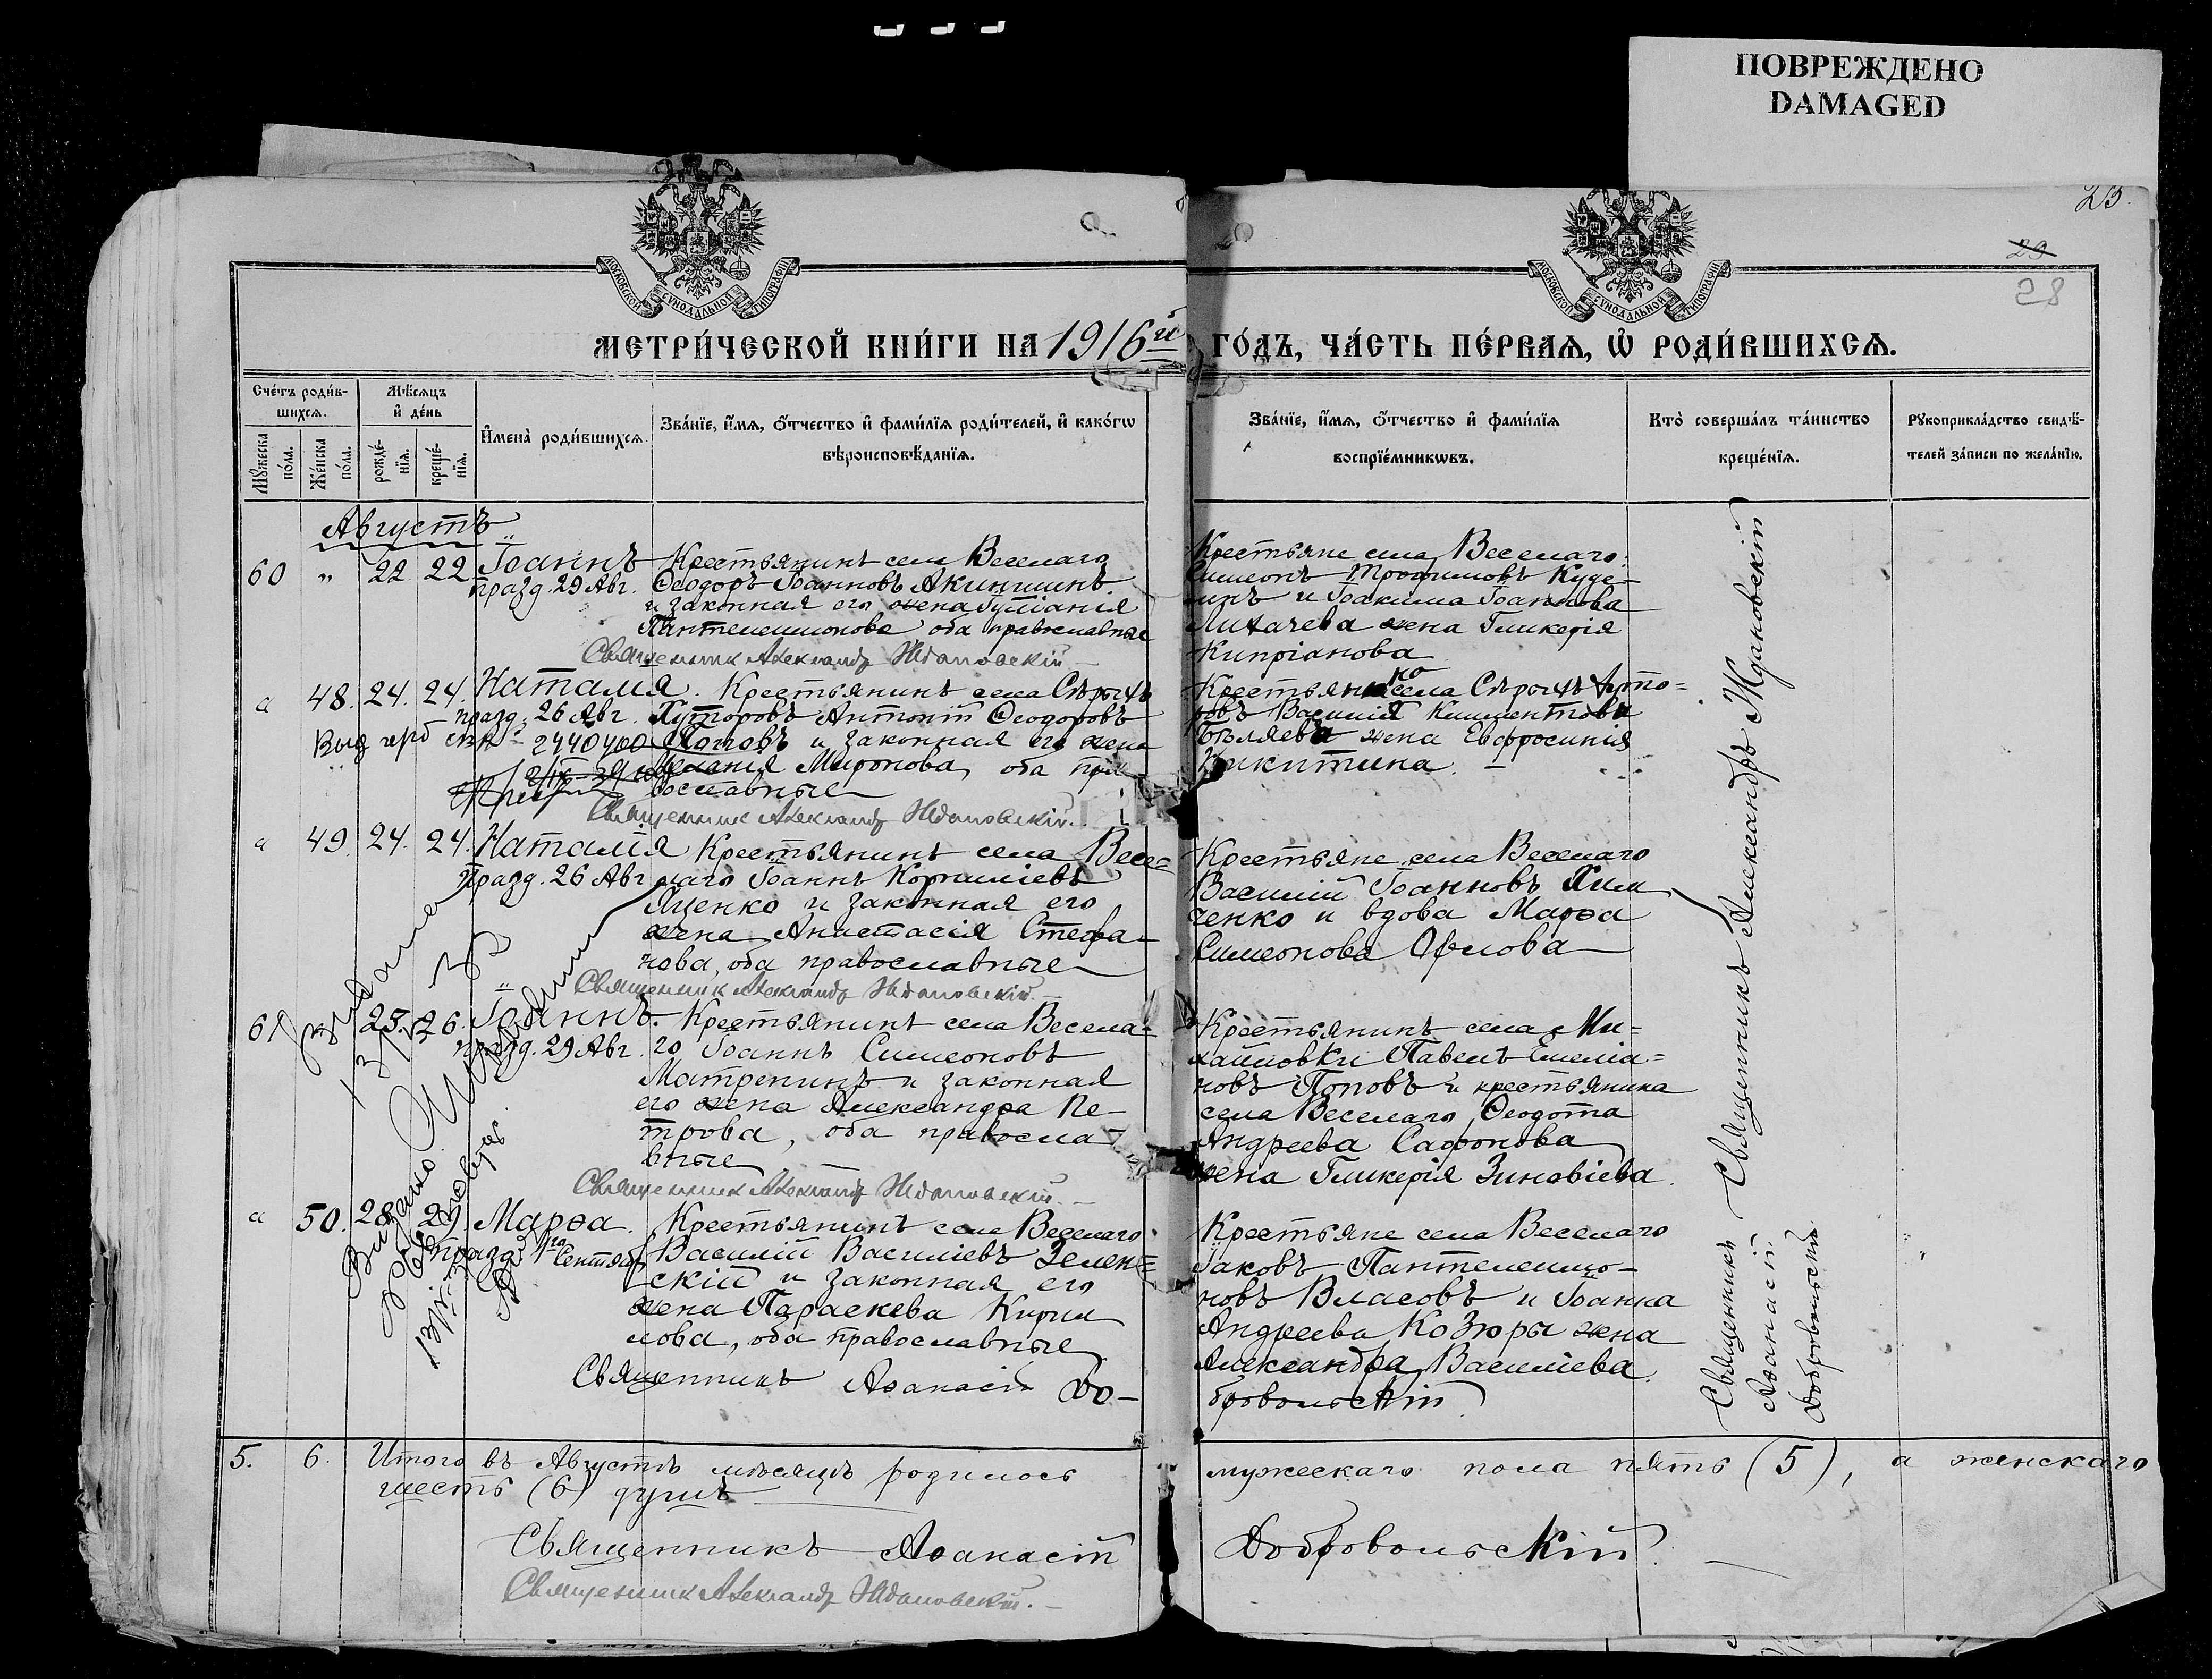 ПОВРЕЖДЕНО
DAMAGED
25.
29
28
МОСКОВСКОЙ СѴНОДАЛЬНОЙ ТИПОГРАФІИ
МОСКОВСКОЙ СѴНОДАЛЬНОЙ ТИПОГРАФІИ
МЕТРИ́ЧЕСКОЙ КНИ́ГИ НА 1916й ГО́ДЪ, ЧА́СТЬ ПЕ́РВАѦ, Ѡ҆ РОДИ́ВШИХСѦ.
Сче́тъ роди́в-
шихсѧ.
Мꙋ́жеска
по́ла.
Же́нска
по́ла.
Мѣ́сѧцъ
и҆ де́нь
рожде́-
нїѧ.
креще́-
нїѧ.
И҆мена̀ роди́вшихсѧ.
Зва́нїе, и҆́мѧ, ѻ҆́тчество и҆ фами́лїѧ роди́телей, и҆ како́гѡ
вѣроисповѣ́данїѧ.
Зва́нїе, и҆́мѧ, ѻ҆́тчество и҆ фами́лїѧ
воспрїе́мникѡвъ.
Кто̀ соверша́лъ та́инство
креще́нїѧ.
Рꙋкоприкла́дство свидѣ́-
телей за́писи по жела́нїю.
Августъ
60 „ 22 22 Іоаннъ Крестьянинъ села Веселаго
празд. 29 Авг. Ѳеодоръ Іоанновъ Акиншинъ
и законная его жена Іуліанія
Пантелеимонова оба православные
Священник Александр Ждановскій
Крестьяне села Веселаго:
Симеонъ Трофимовъ Куде-
линъ и Іоакима Іоаннова
Лихачева жена Гликерія
Кипріанова
а 48. 24. 24. Наталія. Крестьянинъ села Сѣрыхъ
празд. 26 Авг. Хуторовъ Антоній Ѳеодоровъ
2440400 Поповъ и законная его жена
Меланія Миронова, оба пра
вославные
Священник Александр Ждановскій.
села Сѣрыхъ Хуто=
ровъ Василія Климентова
Бѣляева жена Евфросинія
Никитина. —
а 49. 24. 24. Наталія Крестьянинъ села Весе=
Празд. 26 Авг лаго Іоаннъ Корниліевъ
Яценко и законная его
жена Анастасія Стефа-
нова, оба православные
Священник Александр Ждановскій.
Крестьяне села Веселаго
Василій Іоанновъ Хим
ченко и вдова Марѳа
Симеонова Орлова
61 25. 26. Іоаннъ. Крестьянинъ села Весела-
празд. 29 Авг. го Іоаннъ Симеоновъ
Матренинъ и законная
его жена Александра Пе-
трова, оба правосла
вные
Священник Александр Ждановскій. —
Крестьянинъ села Ми=
хайловки Павелъ Емеліа=
новъ Поповъ и крестьянина
села Веселаго Ѳеодота
Андреева Сафонова
жена Гликерія Зиновіева.
а 50. 28. 29. Марѳа. Крестьянинъ села Веселаго
празд. 1го Сентяб. Василій Василіевъ Зелен=
скій и законная его
жена Параскева Кирил
лова, оба православные
Священникъ Аѳанасій До-
бровольскій
Крестьяне села Веселаго
Іаковъ Пантелеимо-
новъ Власовъ и Іоанна
Андреева Козюры жена
Александра Василіева.
Священникъ Александръ Ждановскій
Священникъ
Аѳанасій
Добровольскій
5. 6. Итого въ Августѣ мѣсяцѣ родилось мужескаго пола пять (5), а женскаго
шесть (6) душъ
Священникъ Аѳанасій Добровольскій.
Священник Александр Ждановскій. —